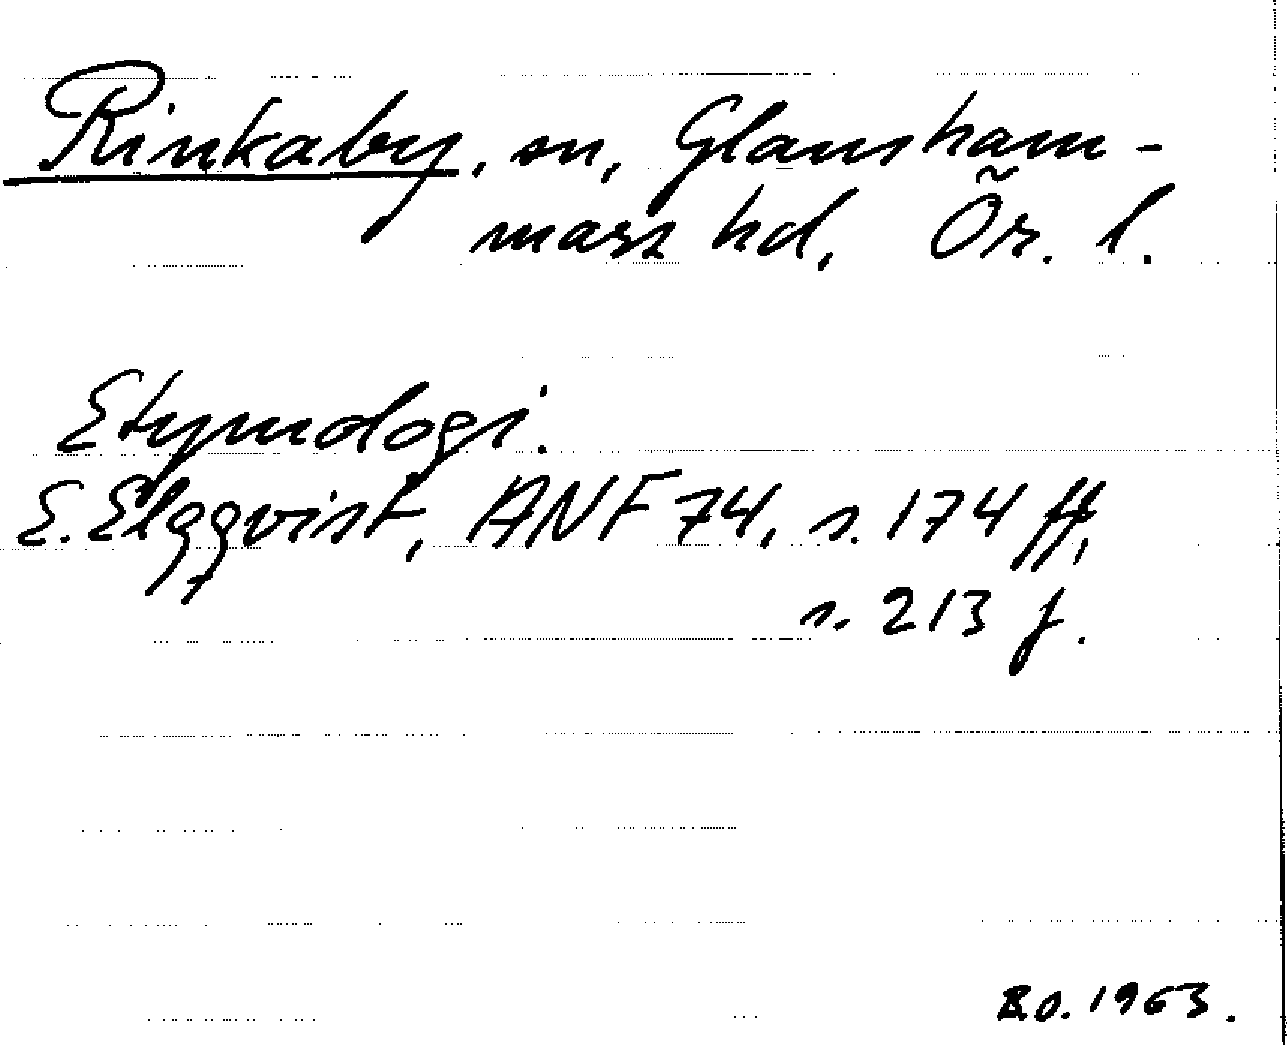 Rinkaby, sn, Glansham-
mars hd, Ör. l.
Etymologi.
E. Elgqvist, ANF 74, s. 174 ff,
s. 213 f.
1963.